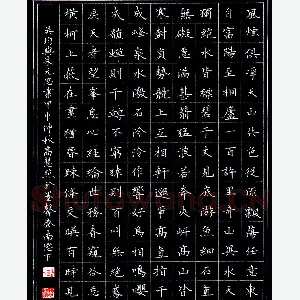 風煙俱淨天山共色從流飄蕩任意東
自富陽至桐廬一百許里奇山異水天
獨絕水皆縹碧千丈見底游魚細石
無礙急湍甚箭猛浪若奔夾岸高山
寒樹負勢競上互相軒邈爭高直指
成峰泉水激石泠泠作響好鳥相鳴嚶
成韻蟬則千轉不窮猿則百叫無絕
戾天者望峰息心經綸世務者窺谷忘
橫柯上蔽在晝猶昏疏條交映有時見
吳均與朱元思書甲申仲秋高慧然於墨馨齋南窗下